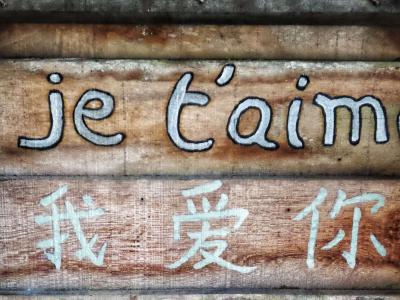 je t'aime
我爱你